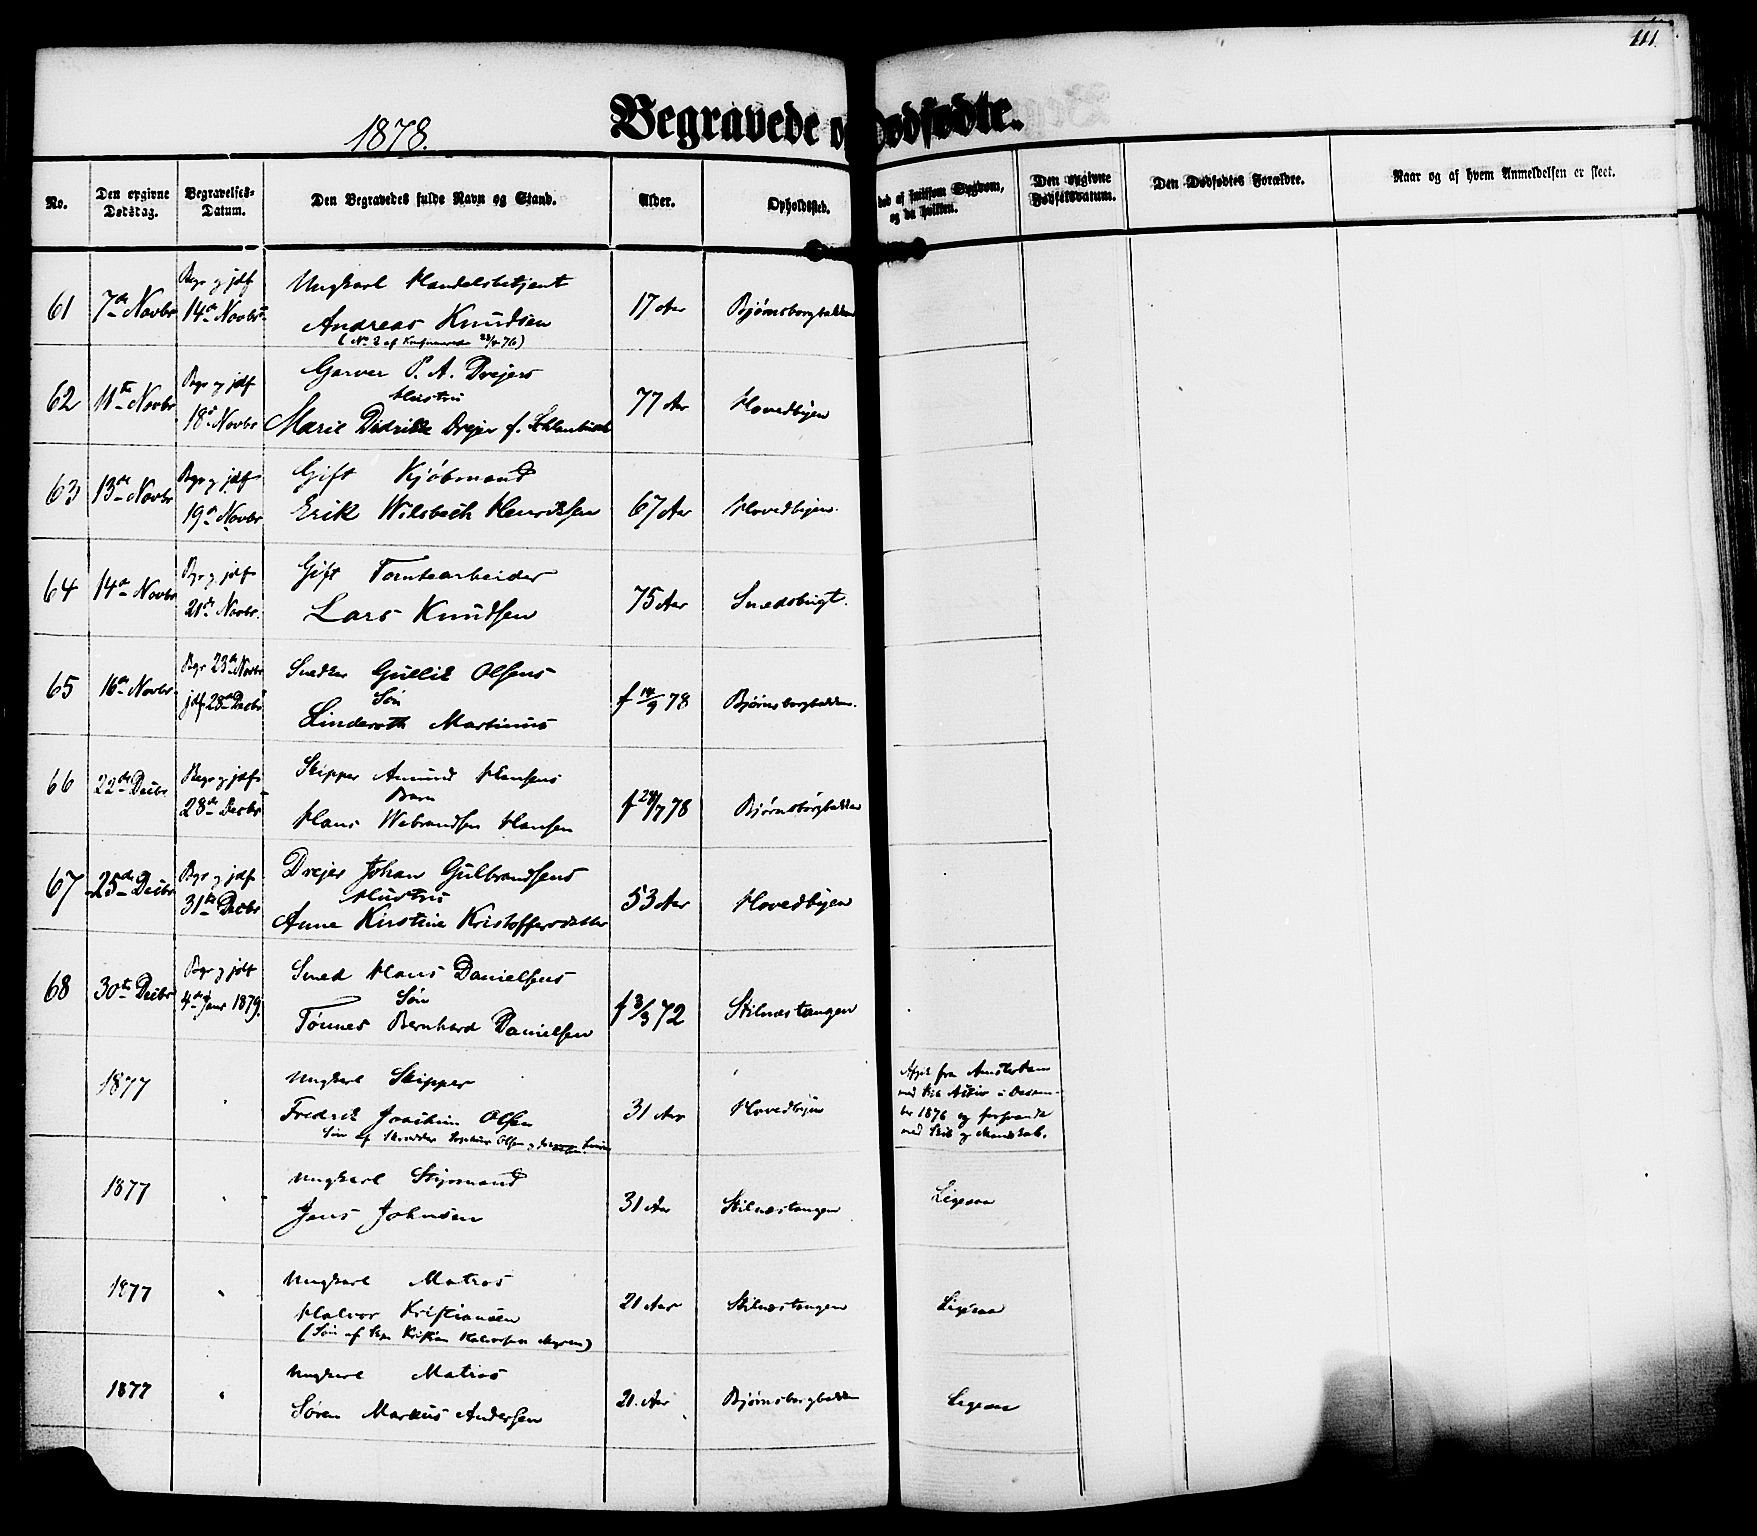 111.
1878.
Begravede o Dødfødte.
No.
Den opgivne Dødsdag.
Begravelses-Datum.
Den Begravedes fulde Navn og Stand.
Alder.
Opholdssted.
død af smitsom Sygdom, og da hvilken.
Den opgivne Fødselsdatum.
Den Dødfødtes Forældre.
Naar og af hvem Anmeldelsen er skeet.
61 7de Novbr Begr og jdf 14de Novbr. Ungkarl Handelsbetjent
Andreas Knudsen 17 Aar Bjørnsborgbakken
62 11te Novbr Begr og jdf 18de Novbr Garver P. A. Drejers
Hustru
Marie Didrikke Drejer f. 77 Aar Hovedbyen
63 13de Novbr Begr og jdf 19de Novbr Gift Kjøbmand
Erik Wilsbech Henriksen 67 Aar Hovedbyen.
64 14de Novbr Begr og jdf 21de Novbr. Gift Tomtearbeider
Lars Knudsen 75 Aar Snedsbugt.
65 16de Novbr. Begr 23de Novbr jdf. 28de Decbr Snedker Gullik Olsens
Søn
Linderoth Martinius f 14/9 78 Bjørnsborgbakken.
66 22de Decbr Begr og jdf 28de Decbr Skipper Amund Hansens
Barn
Hans Webrandsen Hansen f 24/7 78 Bjørnsborgbakken
67 25de Decbr Begr og jdf 31te Decbr Drejer Johan Gulbrandsens
Hustru
Anne Kirstine Kristoffersdatter 53 Aar Hovedbyen
68 30te Decbr Begr og jdf 4de Janr 1879. Smed Hans Danielsens
Søn
Tønnes Bernhard Danielsen f 3/3 72 Stilnæstangen
1877 " Ungkarl Skipper
Fredrik Joachim Olsen
Søn af Skrædder Olsen og 31 Aar Hovedbyen
Afgik fra Amsterdam
med Skib Aktiv i Decem-
ber 1876 og forsvandt
med Skib og Mandskab.
1877 " Ungkarl Styrmand
Jens Johnsen 31 Aar Stilnæstangen Ligesaa
1877 " Ungkarl Matros
Halvor Kristiansen
(Søn af Kristian Halvorsen Myren) 21 Aar Stilnæstangen Ligesaa
1877 " Ungkarl Matros
Søren Markus Andersen 21. Aar Bjørnsborgbakken Ligesaa